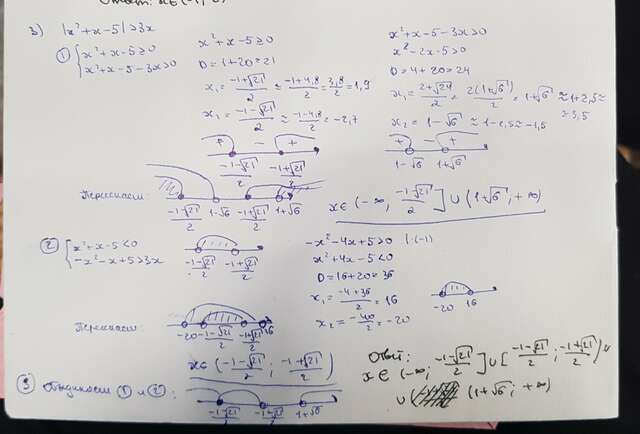 3) |x²+x-5|>3x
① { x²+x-5≥0
x²+x-5-3x>0
x²+x-5≥0
D=1+20=21
x₁=(-1+√21)/2 ≈ (-1+4,8)/2 = 3,8/2 = 1,9
x₂=(-1-√21)/2 ≈ (-1-4,8)/2 = -2,7
+ - +
(-1-√21)/2 (-1+√21)/2
x²+x-5-3x>0
x²-2x-5>0
D=4+20=24
x₁=(2+√24)/2 = 2(1+√6)/2 = 1+√6 ≈ 1+2,5 ≈
≈ 3,5
x₂=1-√6 ≈ 1-2,5 ≈ -1,5
+ - +
1-√6 1+√6
Пересекаем:
(-1-√21)/2 1-√6 (-1+√21)/2 1+√6
x∈(-∞; (-1-√21)/2] ∪ (1+√6; +∞)
② { x²+x-5<0
-x²-x+5>3x
(-1-√21)/2 (-1+√21)/2
-x²-4x+5>0 |·(-1)
x²+4x-5<0
D=16+20=36
x₁=(-4+36)/2=16
x₂=-40/2=-20
-20 16
Пересекаем:
-20 (-1-√21)/2 (-1+√21)/2 16
x∈((-1-√21)/2; (-1+√21)/2)
③ Объединяем ① и ②:
(-1-√21)/2 (-1+√21)/2 1+√6
Ответ:
x∈(-∞; (-1-√21)/2] ∪ [(-1-√21)/2; (-1+√21)/2) ∪
∪ (1+√6; +∞)